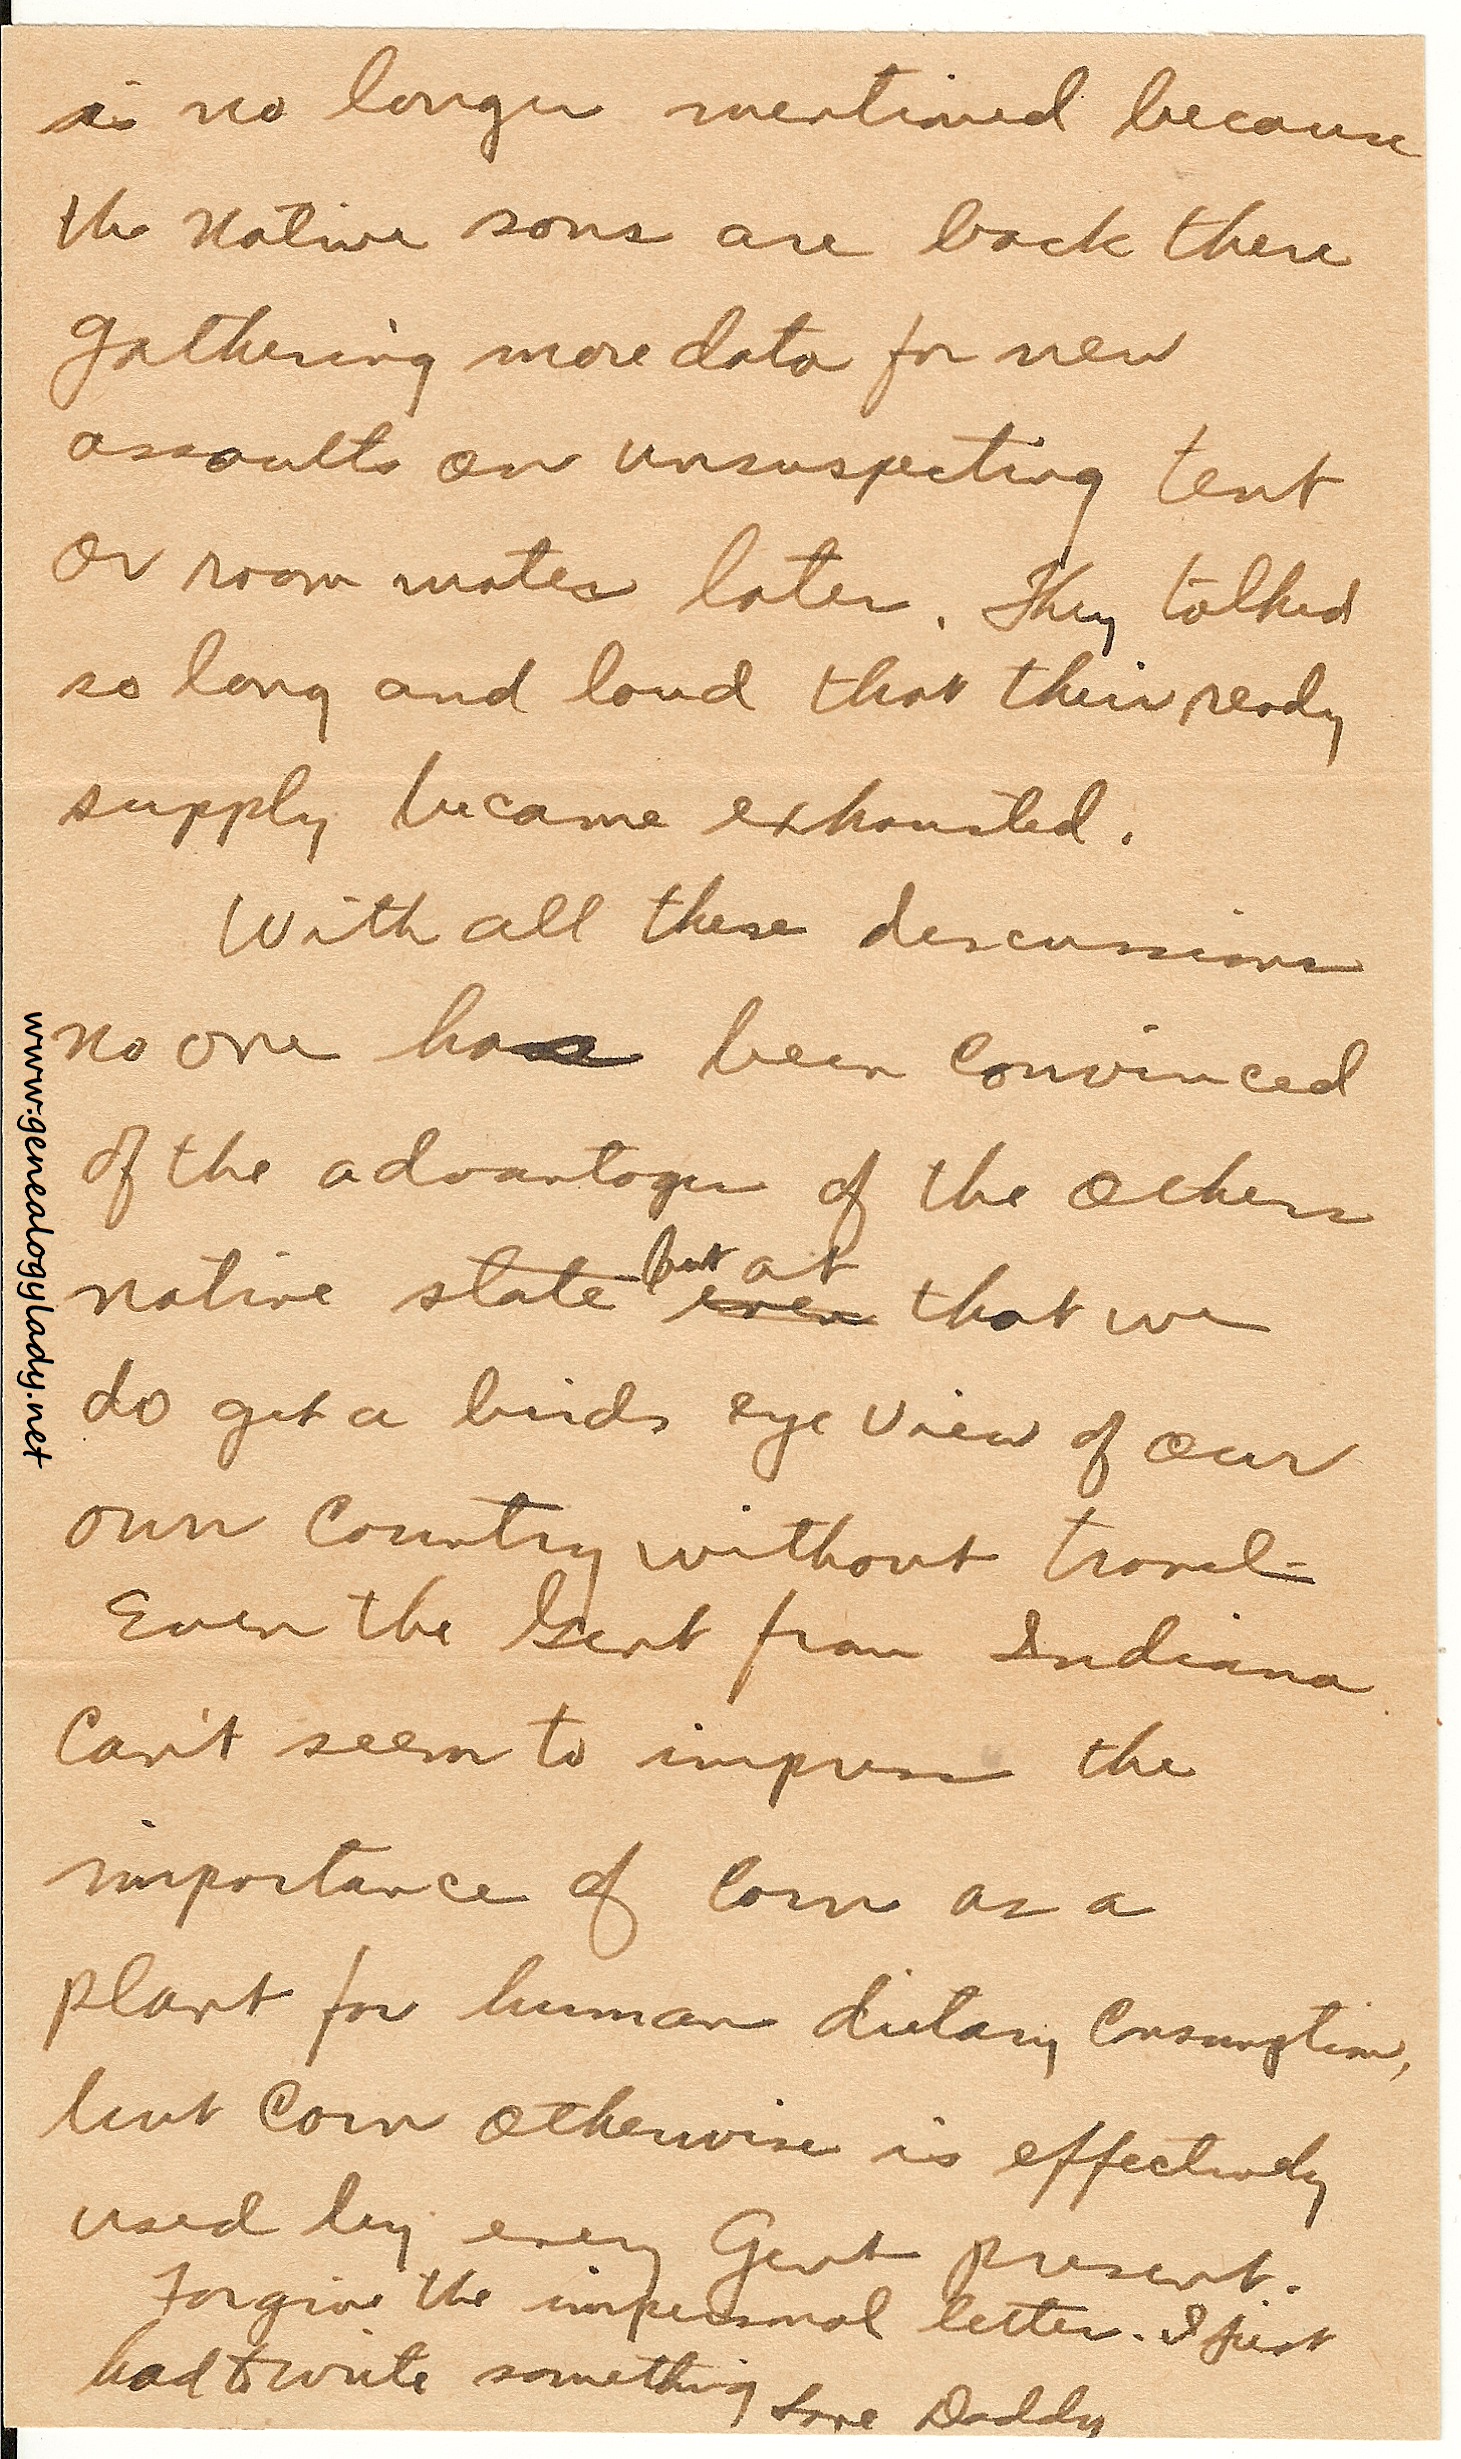 is no longer mentioned because
the native sons are back there
gathering more data for new
assaults on unsuspecting tent
or room mates later. They talked
so long and loud that their ready
supply became exhausted.
With all these discussions
no one has been convinced
of the advantages of the others
native state but at even that we
do get a birds eye view of our
own country without travel-
Even the Gent from Indiana
Can't seem to impress the
importance of Corn as a
plant for human dietary Consumption,
but Corn otherwise is effectively
used by every Gent present.
Forgive the impersonal letter. I just
had to write something Love Daddy
www.genealogylady.net